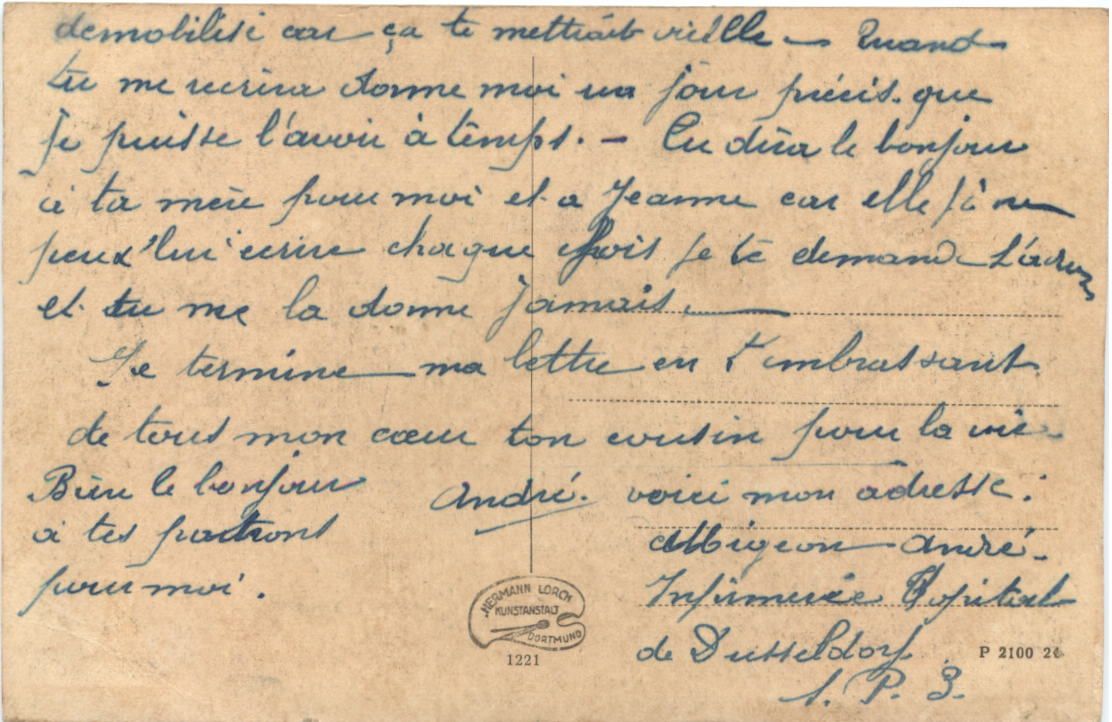 demobilisé car ça te mettrait vieille — Quand
tu me recrira donne moi un jour précis que
je puisse l'avoir à temps. — Tu dira le bonjour
à ta mère pour moi et a Jeanne car elle je ne
peux lui ecrire chaque fois je te demande l'adres
et tu me la donne jamais.
Je termine ma lettre en t'embrassant
de tous mon cœur ton cousin pour la vie
Bien le bonjour
à tes patrons
pour moi.
André. voici mon adresse :
André.
Infirmerie Hopital
de Dusseldorf
S. P. 3.
HERMANN LORCH
KUNSTANSTALT
DORTMUND
1221
P 2100 24